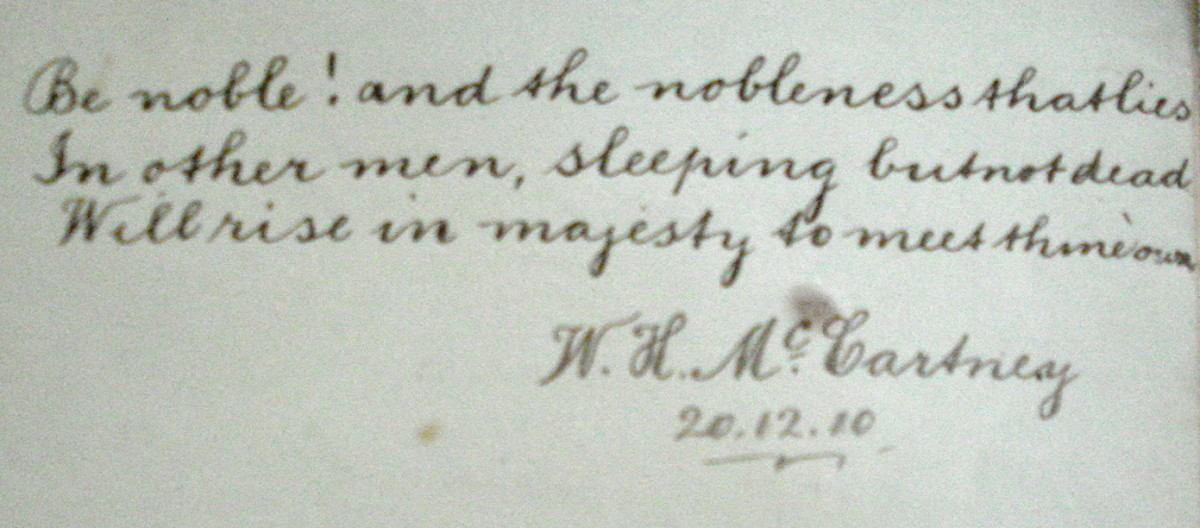 Be noble! and the nobleness that lies
In other men, sleeping but not dead
Will rise in majesty to meet thine own
W. H. Mc. Cartney
20.12.10